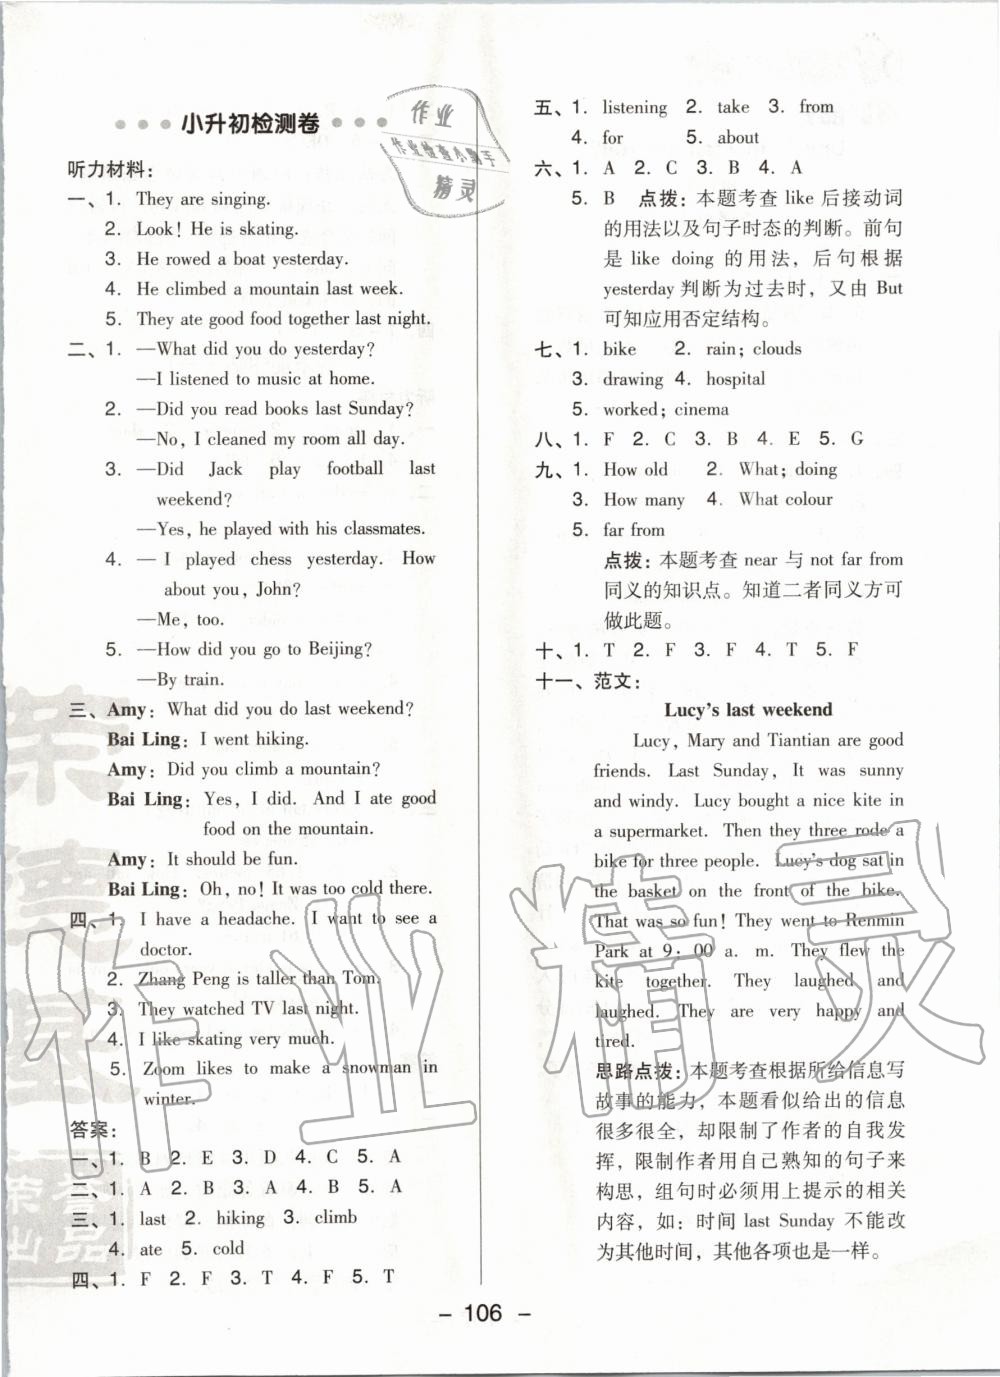 小升初检测卷
听力材料：
一、1. They are singing.
2. Look! He is skating.
3. He rowed a boat yesterday.
4. He climbed a mountain last week.
5. They ate good food together last night.
二、1. —What did you do yesterday?
—I listened to music at home.
2. —Did you read books last Sunday?
—No, I cleaned my room all day.
3. —Did Jack play football last
weekend?
—Yes, he played with his classmates.
4. — I played chess yesterday. How
about you, John?
—Me, too.
5. —How did you go to Beijing?
—By train.
三、Amy: What did you do last weekend?
Bai Ling: I went hiking.
Amy: Did you climb a mountain?
Bai Ling: Yes, I did. And I ate good
food on the mountain.
Amy: It should be fun.
Bai Ling: Oh, no! It was too cold there.
四、1. I have a headache. I want to see a
doctor.
2. Zhang Peng is taller than Tom.
3. They watched TV last night.
4. I like skating very much.
5. Zoom likes to make a snowman in
winter.
答案：
一、1. B 2. E 3. D 4. C 5. A
二、1. A 2. B 3. A 4. B 5. A
三、1. last 2. hiking 3. climb
4. ate 5. cold
四、1. F 2. F 3. T 4. F 5. T
五、1. listening 2. take 3. from
4. for 5. about
六、1. A 2. C 3. B 4. A
5. B 点拨：本题考查 like 后接动词
的用法以及句子时态的判断。前句
是 like doing 的用法，后句根据
yesterday 判断为过去时，又由 But
可知应用否定结构。
七、1. bike 2. rain; clouds
3. drawing 4. hospital
5. worked; cinema
八、1. F 2. C 3. B 4. E 5. G
九、1. How old 2. What; doing
3. How many 4. What colour
5. far from
点拨：本题考查 near 与 not far from
同义的知识点。知道二者同义方可
做此题。
十、1. T 2. F 3. F 4. T 5. F
十一、范文：
Lucy's last weekend
Lucy, Mary and Tiantian are good
friends. Last Sunday, It was sunny
and windy. Lucy bought a nice kite in
a supermarket. Then they three rode a
bike for three people. Lucy's dog sat in
the basket on the front of the bike.
That was so fun! They went to Renmin
Park at 9：00 a. m. They flew the
kite together. They laughed and
laughed. They are very happy and
tired.
思路点拨：本题考查根据所给信息写
故事的能力，本题看似给出的信息
很多很全，却限制了作者的自我发
挥，限制作者用自己熟知的句子来
构思，组句时必须用上提示的相关
内容，如：时间 last Sunday 不能改
为其他时间，其他各项也是一样。
- 106 -
作业
作业检查小帮手
精灵
作业精灵
荣德基
荣誉
出品